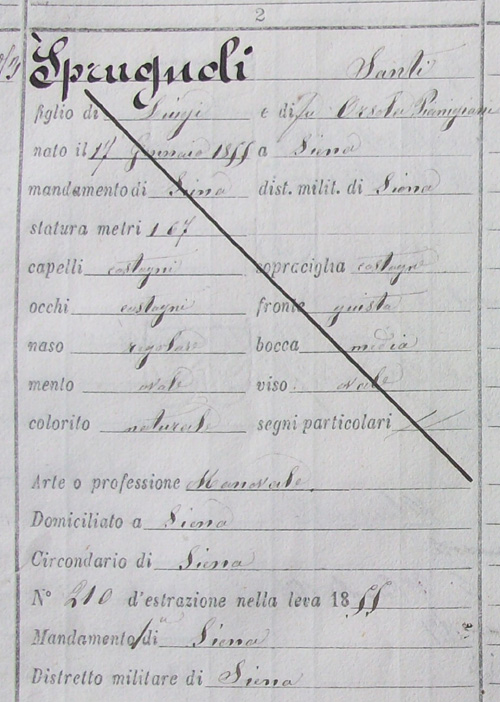 2
Sprugnoli Santi
figlio di Luigi e di fu Orsola Pianigiani
nato il 17 Gennaio 1855 a Siena
mandamento di Siena dist. milit. di Siena
statura metri 1 67
capelli castagni sopraciglia castagne
occhi castagni fronte giusta
naso regolare bocca media
mento ovale viso ovale
colorito naturale segni particolari /
Arte o professione Manovale.
Domiciliato a Siena
Circondario di Siena
N° 210 d'estrazione nella leva 1855
Mandamento di Siena
Distretto militare di Siena